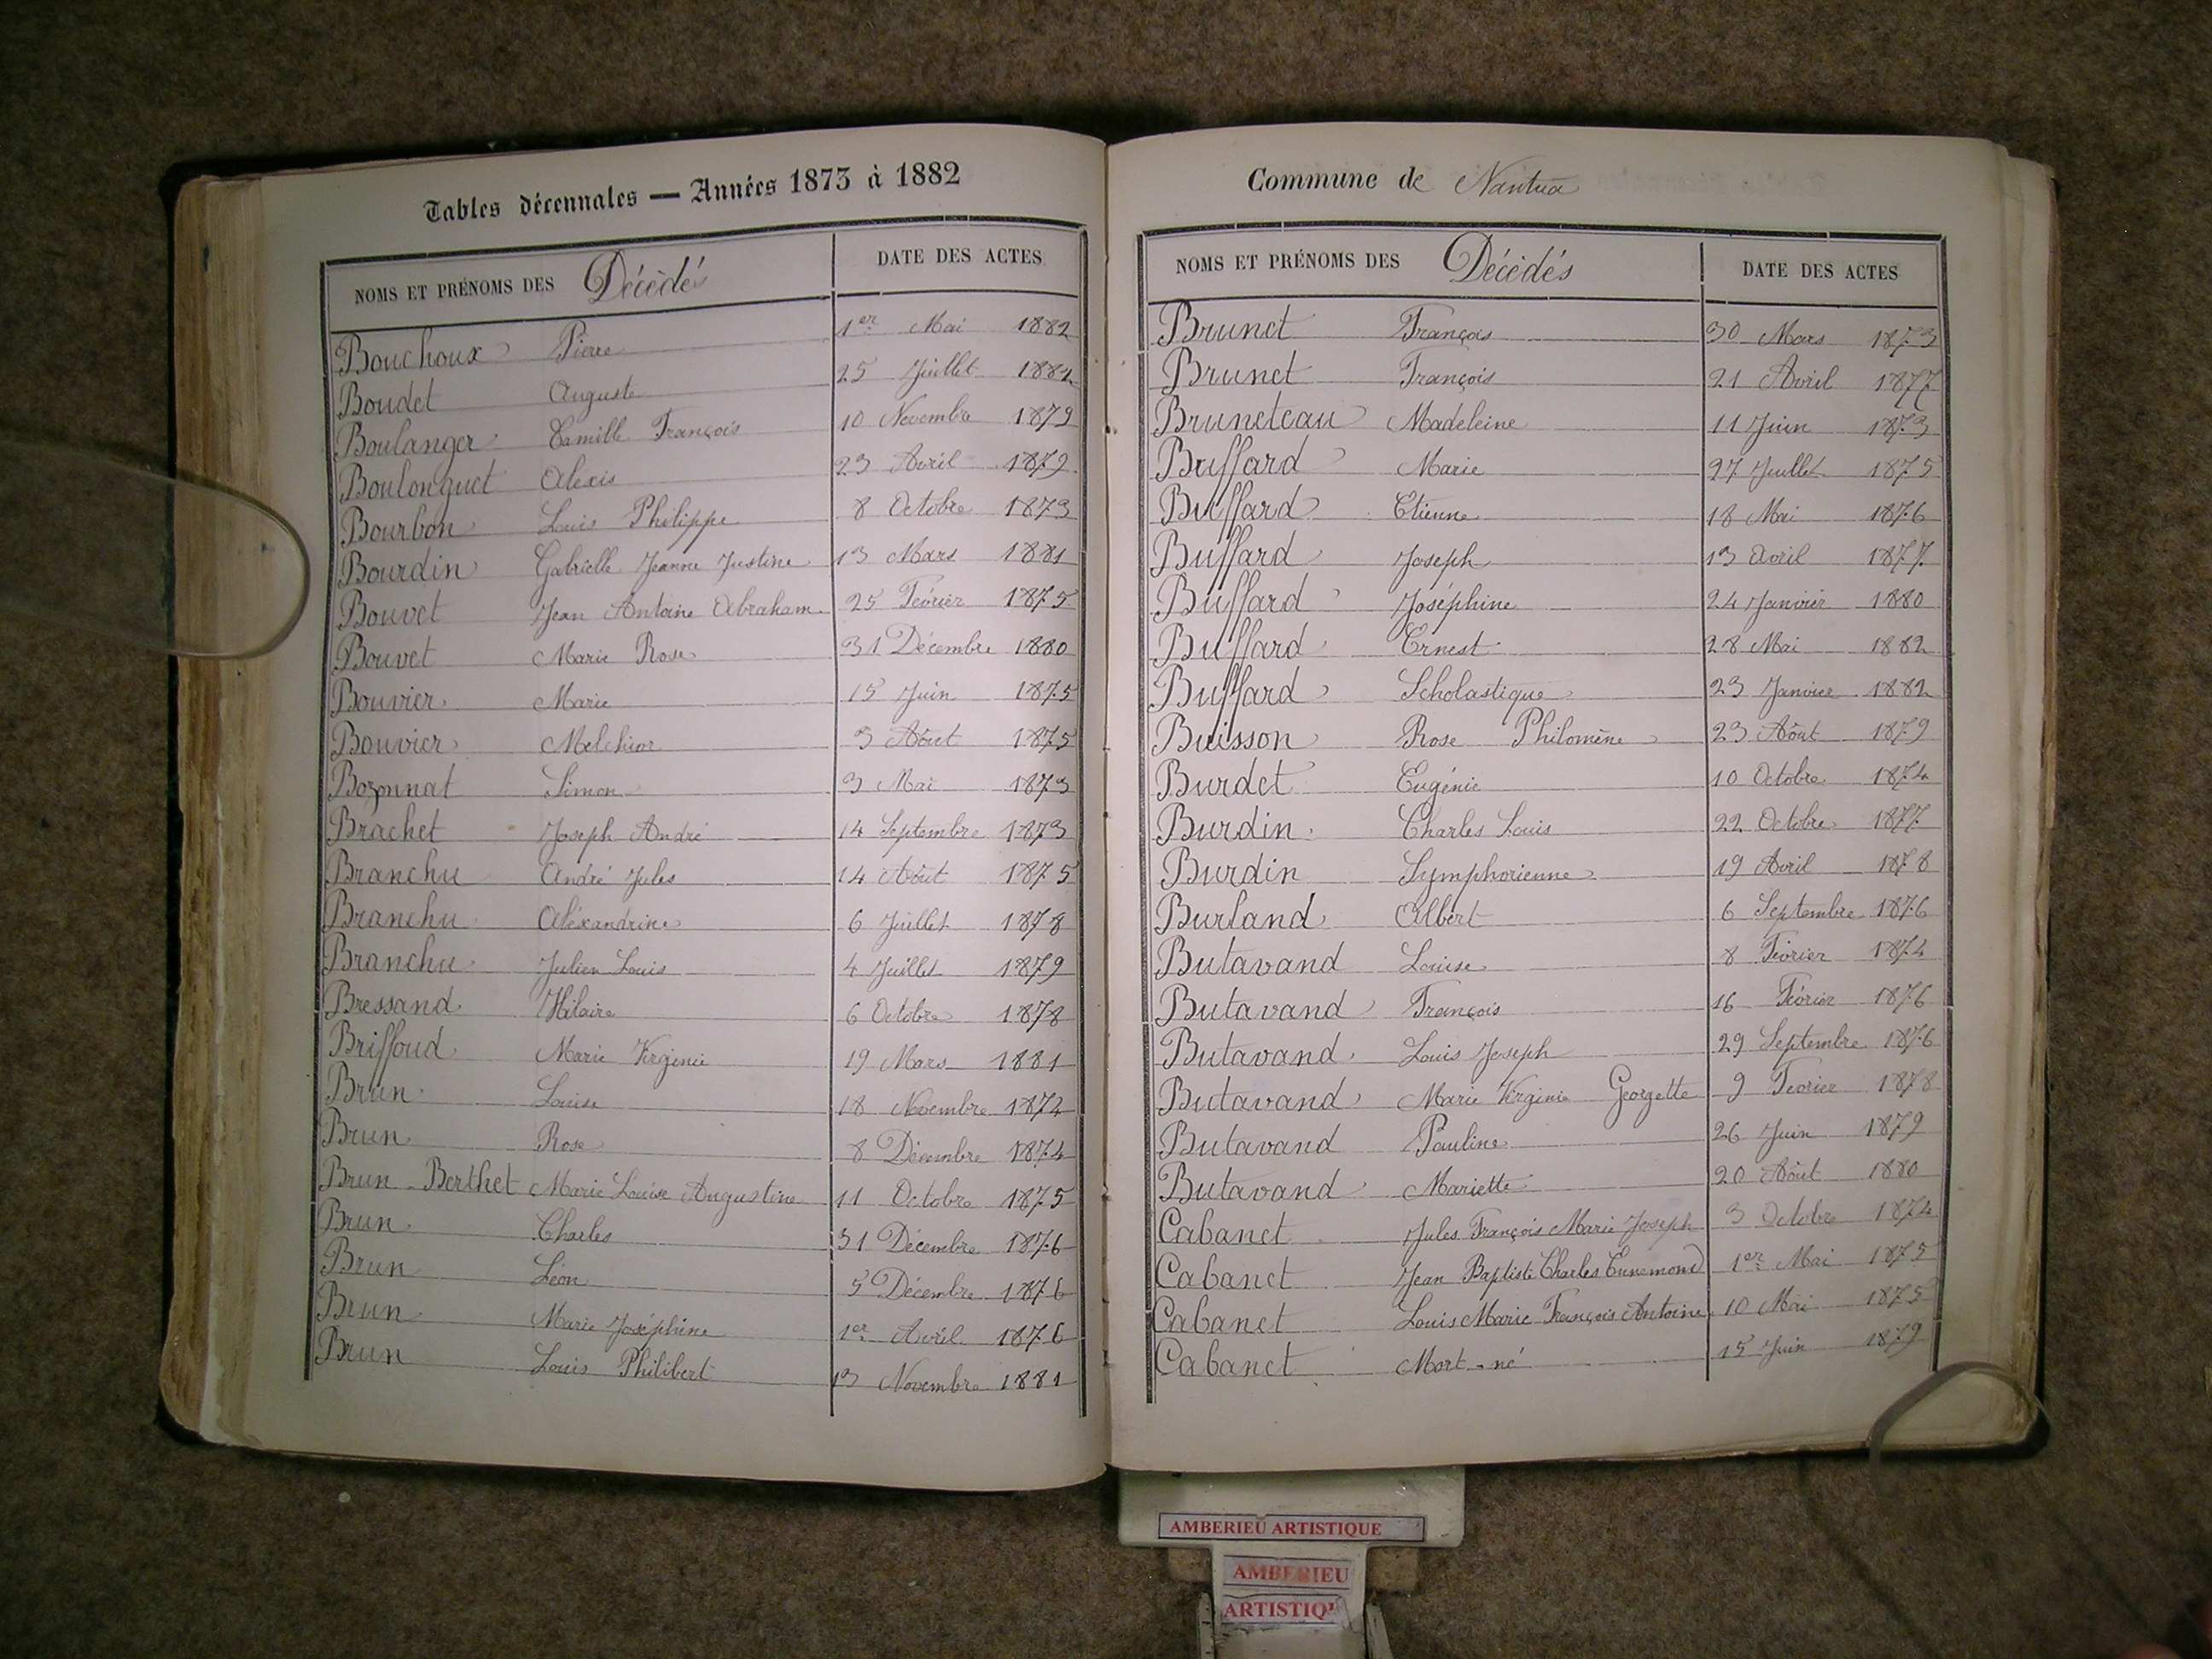 Tables décennales — Années 1873 à 1882
NOMS ET PRÉNOMS DES Décédés DATE DES ACTES
Bouchoux Pierre 1er Mai 1882
Boudet Auguste 25 Juillet 1882
Boulanger Camille François 10 Novembre 1879
Boulonguet Alexis 23 Avril 1879
Bourbon Louis Philippe 8 Octobre 1873
Bourdin Gabrielle Jeanne Justine 13 Mars 1881
Bouvet Jean Antoine Abraham 25 Février 1875
Bouvet Marie Rose 31 Décembre 1880
Bouvier Marie 15 Juin 1875
Bouvier Melchior 3 Août 1875
Bozonnat Simon 3 Mai 1873
Brachet Joseph André 14 Septembre 1873
Branchu André Jules 14 Août 1875
Branchu Aléxandrine 6 Juillet 1878
Branchu Julien Louis 4 Juillet 1879
Bressand Hilaire 6 Octobre 1878
Briffoud Marie Virginie 19 Mars 1881
Brun Louise 18 Novembre 1874
Brun Rose 8 Décembre 1874
Brun-Berthet Marie Louise Augustine 11 Octobre 1875
Brun Charles 31 Décembre 1876
Brun Léon 5 Décembre 1876
Brun Marie Joséphine 1er Avril 1876
Brun Louis Philibert 13 Novembre 1881
Commune de Nantua
NOMS ET PRÉNOMS DES Décédés DATE DES ACTES
Brunet François 30 Mars 1873
Brunet François 21 Avril 1877
Bruneteau Madeleine 11 Juin 1873
Buffard Marie 27 Juillet 1875
Buffard Etienne 18 Mai 1876
Buffard Joseph 13 Avril 1877
Buffard Joséphine 24 Janvier 1880
Buffard Ernest 28 Mai 1882
Buffard Scholastique 23 Janvier 1882
Buisson Rose Philomène 23 Août 1879
Burdet Eugénie 10 Octobre 1874
Burdin Charles Louis 22 Octobre 1877
Burdin Symphorienne 19 Avril 1878
Burland Albert 6 Septembre 1876
Butavand Louise 8 Février 1874
Butavand François 16 Février 1876
Butavand Louis Joseph 29 Septembre 1876
Butavand Marie Virginie Georgette 9 Février 1878
Butavand Pauline 26 Juin 1879
Butavand Mariette 20 Août 1880
Cabanet Jules François Marie Joseph 3 Octobre 1874
Cabanet Jean Baptiste Charles Ennemond 1er Mai 1875
Cabanet Louis Marie François Antoine 10 Mai 1875
Cabanet Mort-né 15 Juin 1879
AMBERIEU ARTISTIQUE
AMBERIEU
ARTISTIQU